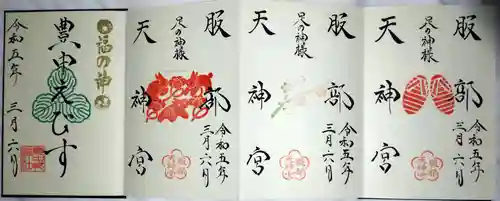 福の神
豊中えびす
令和五年
三月六日
足の神様
服部
天神宮
令和五年
三月六日
足の神様
服部
天神宮
令和五年
三月六日
足の神様
服部
天神宮
令和五年
三月六日